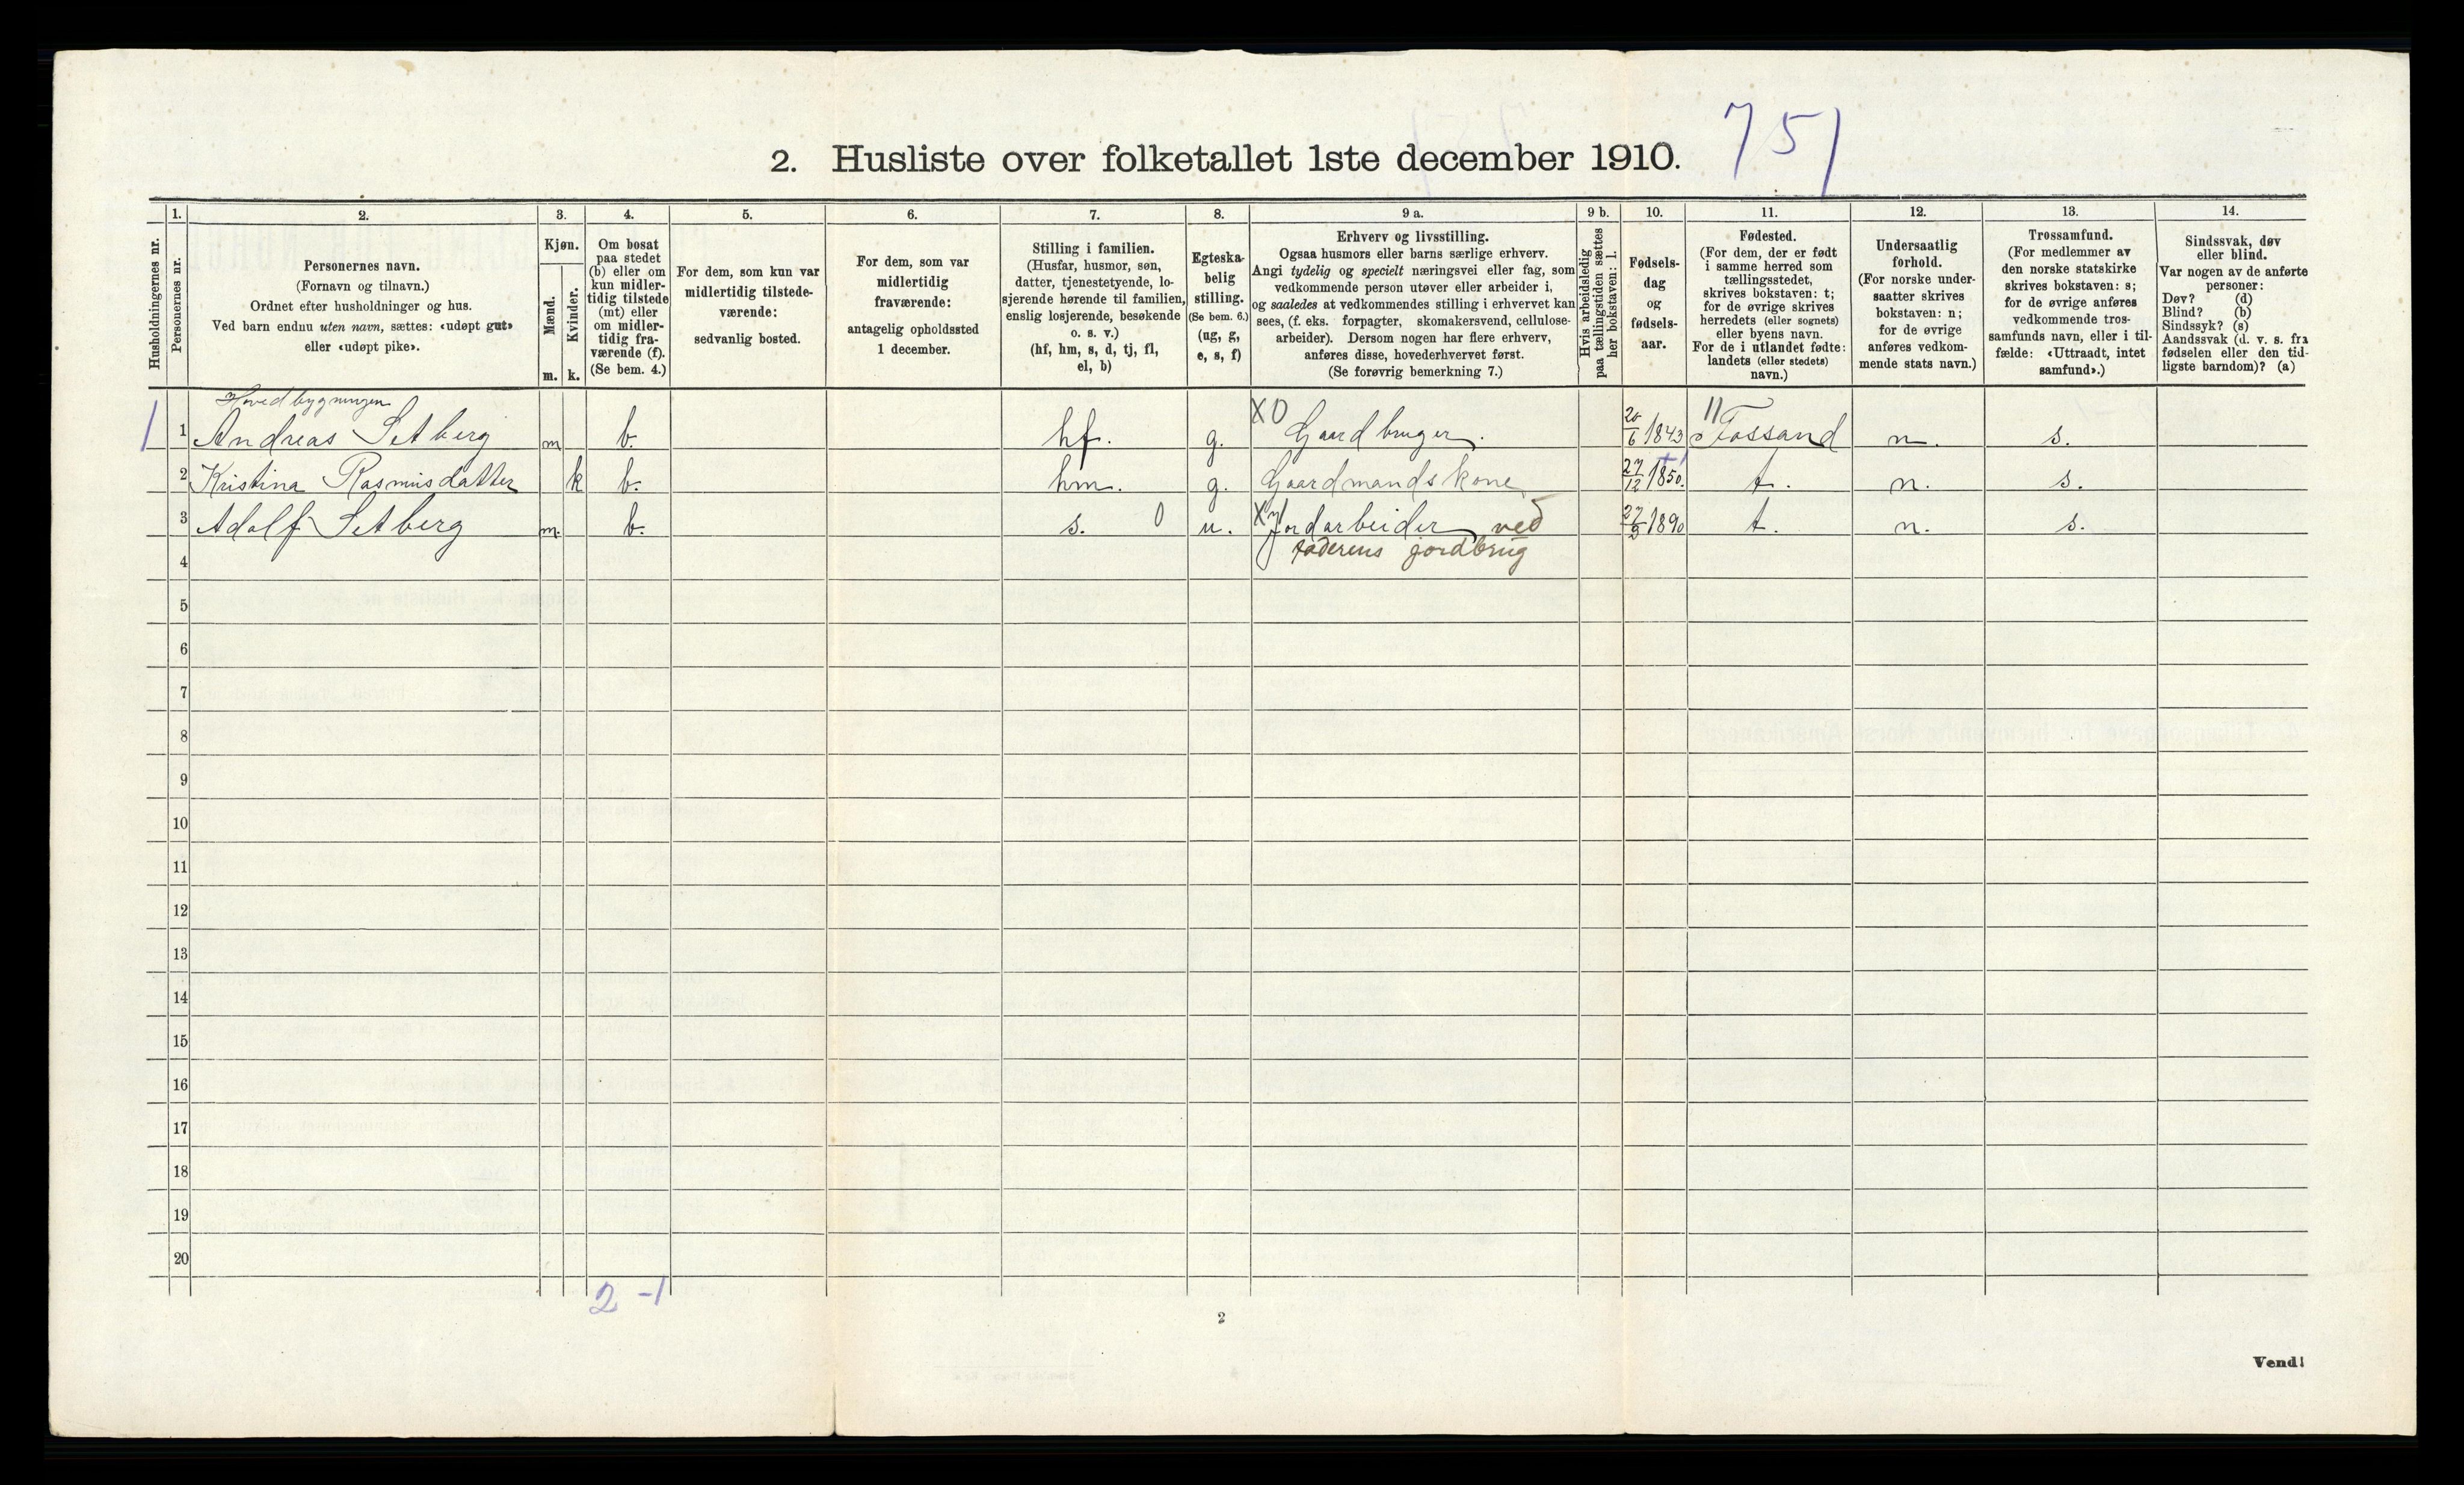 751
2. Husliste over folketallet 1ste december 1910.
Husholdningernes nr.
1. Personernes nr.
2. Personernes navn.
(Fornavn og tilnavn.)
Ordnet efter husholdninger og hus.
Ved barn endnu uten navn, sættes: «udøpt gut»
eller «udøpt pike».
3. Kjøn.
Mænd. m.
Kvinder. k.
4. Om bosat
paa stedet
(b) eller om
kun midler-
tidig tilstede
(mt) eller
om midler-
tidig fra-
værende (f).
(Se bem. 4.)
5. For dem, som kun var
midlertidig tilstede-
værende:
sedvanlig bosted.
6. For dem, som var
midlertidig
fraværende:
antagelig opholdssted
1 december.
7. Stilling i familien.
(Husfar, husmor, søn,
datter, tjenestetyende, lo-
sjerende hørende til familien,
enslig losjerende, besøkende
o. s. v.)
(hf, hm, s, d, tj, fl,
el, b)
8. Egteska-
belig
stilling.
(Se bem. 6.)
(ug, g,
e, s, f)
9 a. Erhverv og livsstilling.
Ogsaa husmors eller barns særlige erhverv.
Angi tydelig og specielt næringsvei eller fag, som
vedkommende person utøver eller arbeider i,
og saaledes at vedkommendes stilling i erhvervet kan
sees, (f. eks. forpagter, skomakersvend, cellulose-
arbeider). Dersom nogen har flere erhverv,
anføres disse, hovederhvervet først.
(Se forøvrig bemerkning 7.)
9 b. Hvis arbeidsledig
paa tællingstiden sættes
her bokstaven: l.
10. Fødsels-
dag
og
fødsels-
aar.
11. Fødested.
(For dem, der er født
i samme herred som
tællingsstedet,
skrives bokstaven: t;
for de øvrige skrives
herredets (eller sognets)
eller byens navn.
For de i utlandet fødte:
landets (eller stedets)
navn.)
12. Undersaatlig
forhold.
(For norske under-
saatter skrives
bokstaven: n;
for de øvrige
anføres vedkom-
mende stats navn.)
13. Trossamfund.
(For medlemmer av
den norske statskirke
skrives bokstaven: s;
for de øvrige anføres
vedkommende tros-
samfunds navn, eller i til-
fælde: «Uttraadt, intet
samfund».)
14. Sindssvak, døv
eller blind.
Var nogen av de anførte
personer:
Døv? (d)
Blind? (b)
Sindssyk? (s)
Aandssvak (d. v. s. fra
fødselen eller den tid-
ligste barndom)? (a)
Hovedbygningen
1 1 Andreas Setberg m b. hf. g. X0 Gaardbruger. 20/6 1843 11 Fossand n. s.
2 Kristina Rasmusdatter k b. hm. g. Gaardmandskone 27/12 1850. t. n. s.
3 Adolf Setberg m. b. s. 0 u. X Jordarbeider ved 1890 t. n. s.
4 faderens jordbrug
5
6
7
8
9
10
11
12
13
14
15
16
17
18
19
20
2 - 1
2
Vend!